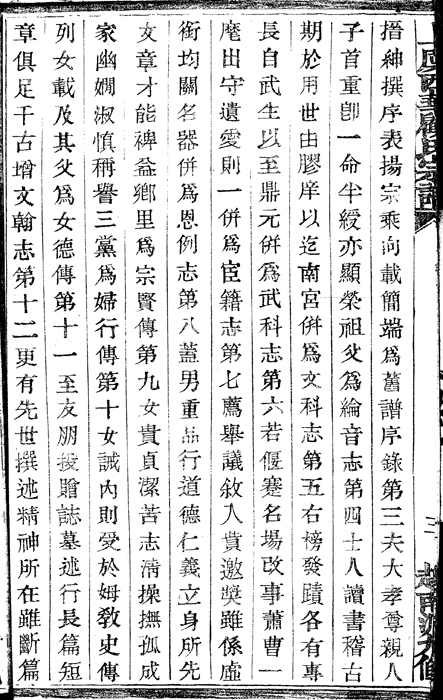 搢紳撰序表揚宗乘向載簡端爲舊譜序錄第三夫大孝尊親人
子首重卽一命半綬亦顯榮祖父爲綸音志第四士人讀書稽古
期於用世由膠庠以迄南宮併爲文科志第五右榜發蹟各有專
長自武生以至鼎元併爲武科志第六若偃蹇名場改事蕭曹一
麾出守遺愛則一併爲宦籍志第七薦舉議敘入貲邀奬雖係虛
銜均關名器併爲恩例志第八蓋男重品行道德仁義立身所先
文章才能裨益鄉里爲宗賢傳第九女貴貞潔苦志清操撫孤成
家幽嫺淑慎稱譽三黨爲婦行傳第十女誡內則受於姆敎史傳
列女載及其父爲女德傳第十一至友朋投贈誌墓述行長篇短
章俱足千古增文翰志第十二更有先世撰述精神所在雖斷篇